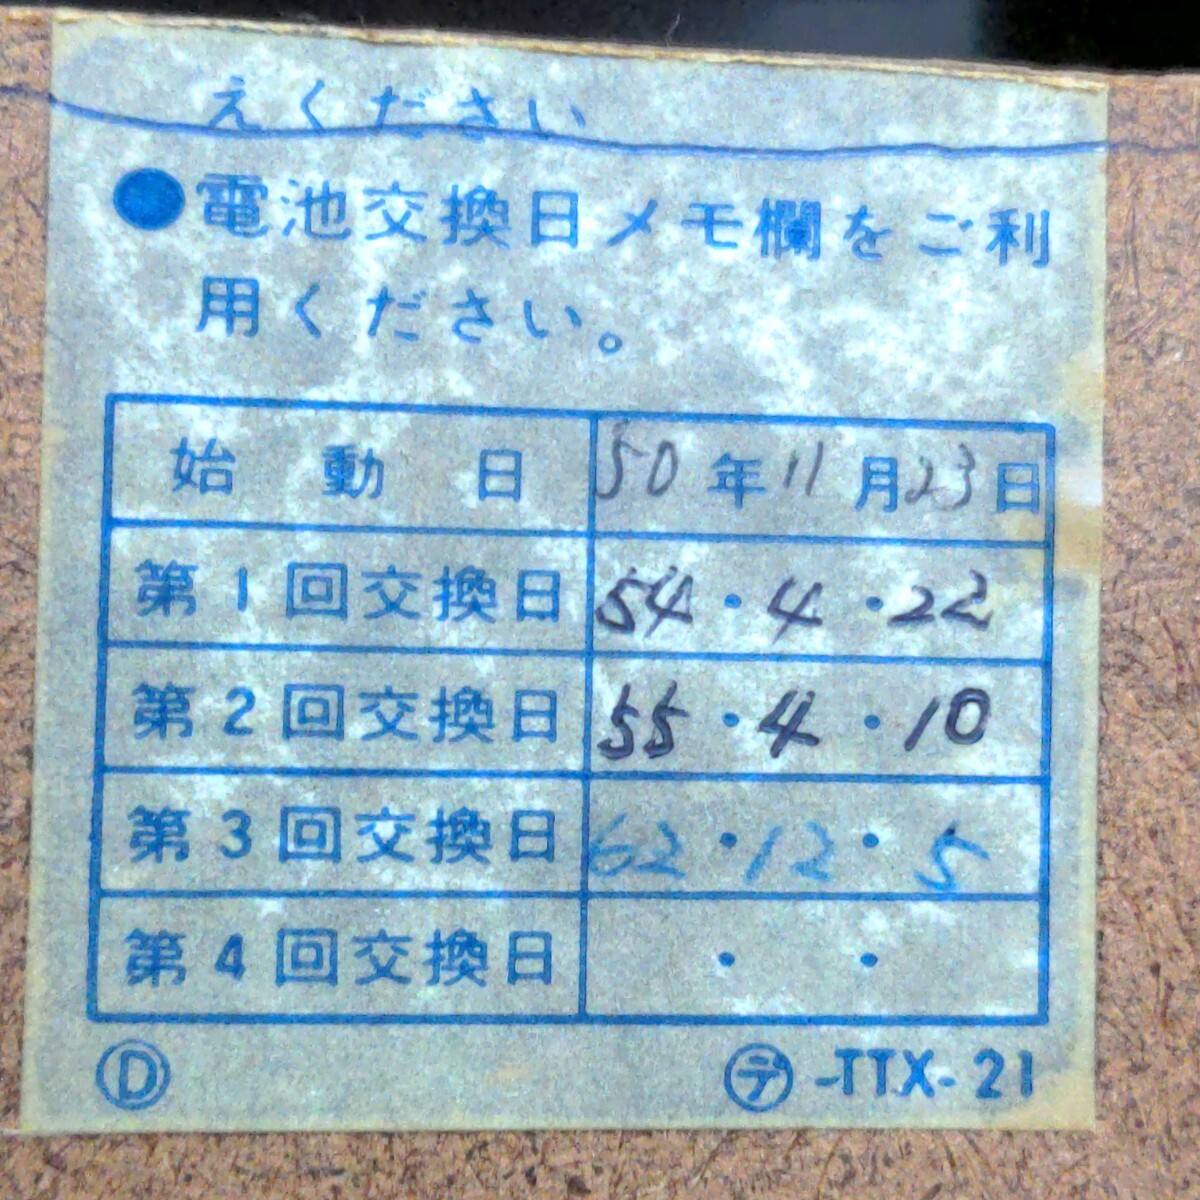 えください
●電池交換日メモ欄をご利
用ください。
始動日 50年11月23日
第1回交換日 54・4・22
第2回交換日 55・4・10
第3回交換日 62・12・5
第4回交換日 ・ ・
Ⓓ ㋢-TTX-21